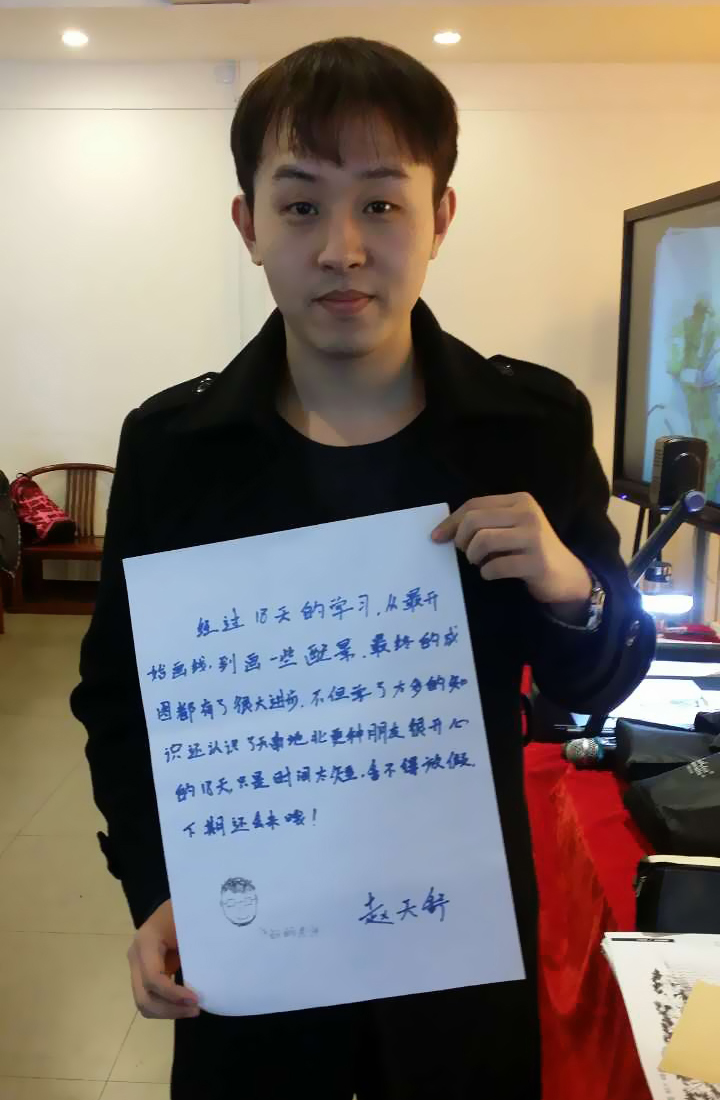 经过18天的学习，从最开
始画线，到画一些配景，最终的成
图都有了很大进步，不但学了方多的知
识还认识了天南地北更种朋友很开心
的18天，只是时间太短，舍不得放假，
下期还会来哦！
赵天舒